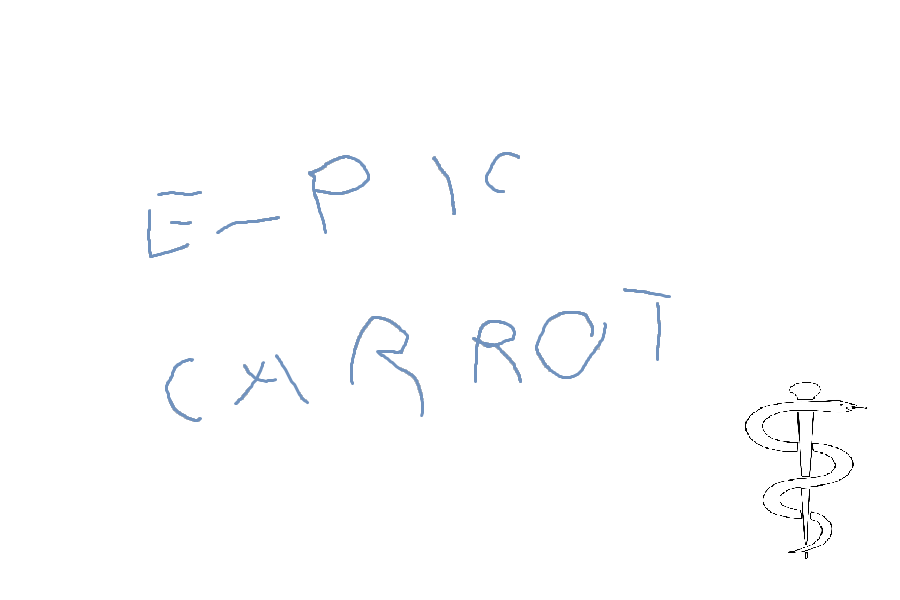 E-PIC
CARROT